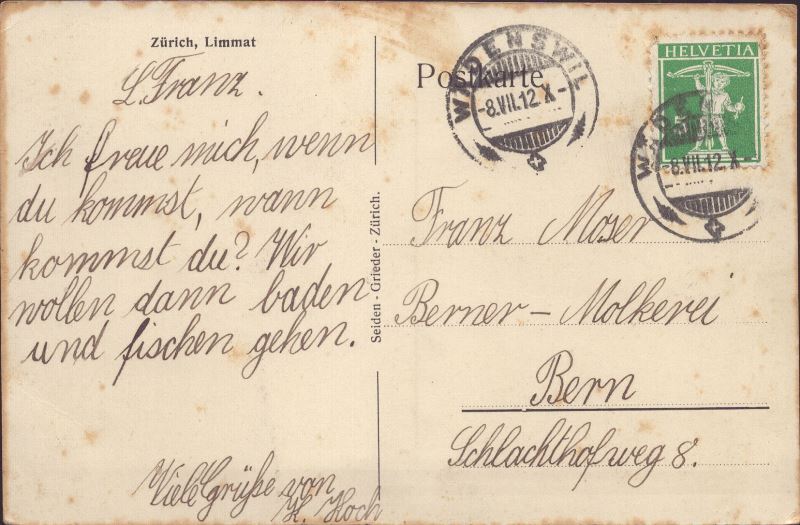 Zürich, Limmat
L. Franz.
Ich freue mich, wenn
du kommst, wann
kommst du? Wir
wollen dann baden
und fischen gehen.
Viele Grüße von
H. Hoch
Seiden - Grieder - Zürich.
Postkarte
WÄDENSWIL
-8.VII.12.X-
HELVETIA
5
WÄDEN
-8.VII.12.X-
Franz Moser
Berner-Molkerei
Bern
Schlachthofweg 8.